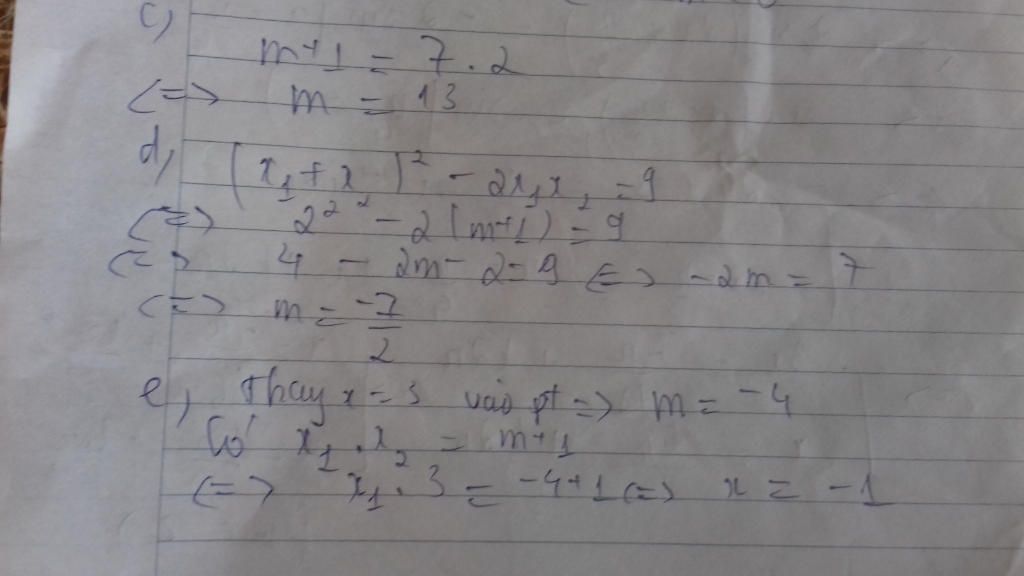 c,
m+1 = 7.2
<=> m = 13
d, (x₁+x₂)² - 2x₁x₂ = 9
<=> 2² - 2(m+1) = 9
<=> 4 - 2m - 2 = 9 <=> -2m = 7
<=> m = -7/2
e, Thay x = 3 vào pt => m = -4
Có x₁.x₂ = m+1
<=> x₁.3 = -4+1 <=> x = -1